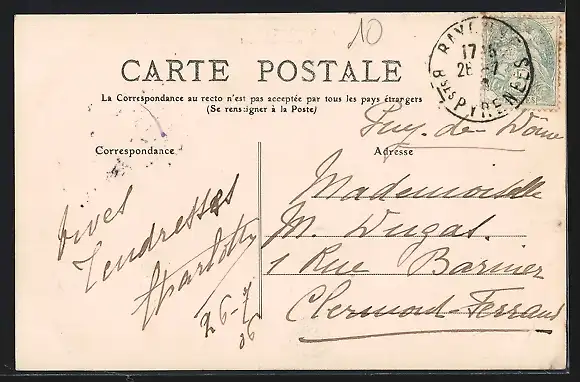 10
BAYONNE
17 15
26 -7
Bses PYRENEES
CARTE POSTALE
La Correspondance au recto n'est pas acceptée par tous les pays étrangers
(Se renseigner à la Poste)
Puy-de-Dôme
Correspondance
Adresse
Vives
Tendresses
Charlotte
26-7
06
Mademoiselle
M. Dugat.
1 Rue Barnier
Clermont-Ferrand